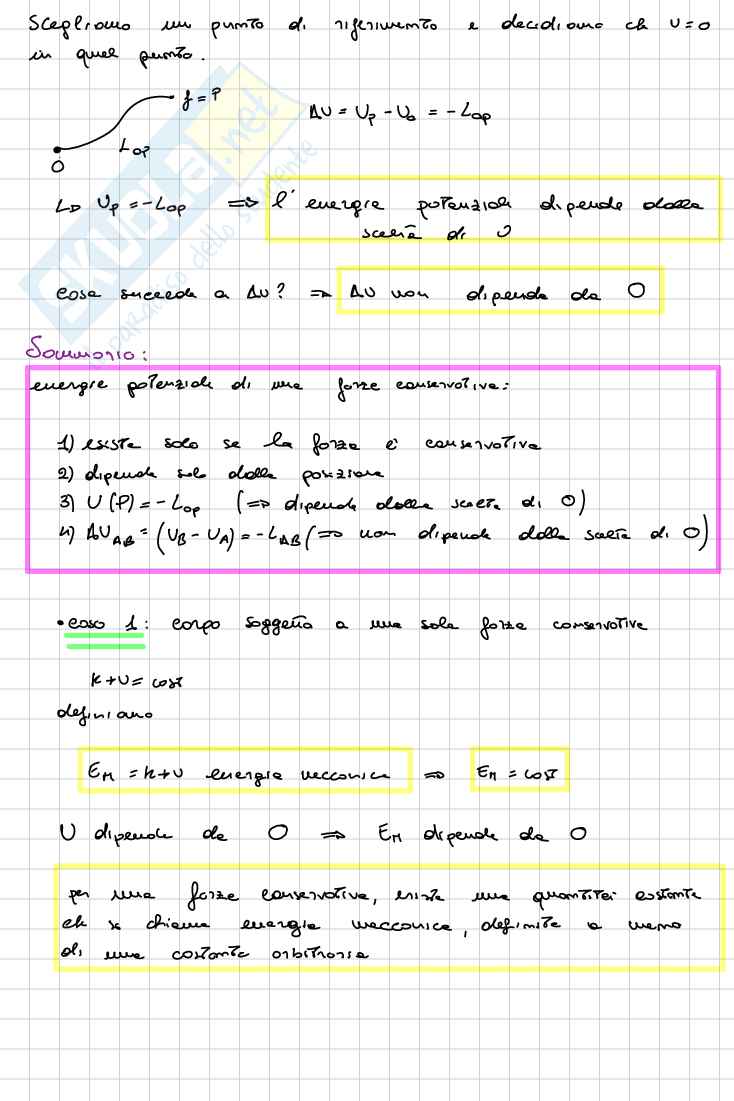 Scegliamo un punto di riferimento e decidiamo ch U=0
in quel punto.
f=P
ΔU = U_P - U_O = -L_OP
L_OP
O
↳ U_P = -L_OP ⇒ l'energia potenziale dipende dalla
scelta di O
cosa succede a ΔU? ⇒ ΔU non dipende da O
Sommario:
energia potenziale di una forza conservativa:
1) esiste solo se la forza è conservativa
2) dipende solo dalla posizione
3) U(P) = -L_OP (⇒ dipende dalla scelta di O)
4) ΔU_AB = (U_B - U_A) = -L_AB (⇒ non dipende dalla scelta di O)
• caso 1: corpo soggetto a una sola forza conservativa
K+U = cost
definiamo
E_M = K+U energia meccanica ⇒ E_M = cost
U dipende da O ⇒ E_M dipende da O
per una forza conservativa, esiste una quantità costante
ch si chiama energia meccanica, definita a meno
di una costante arbitraria
SKUOLA.net
il paradiso dello studente